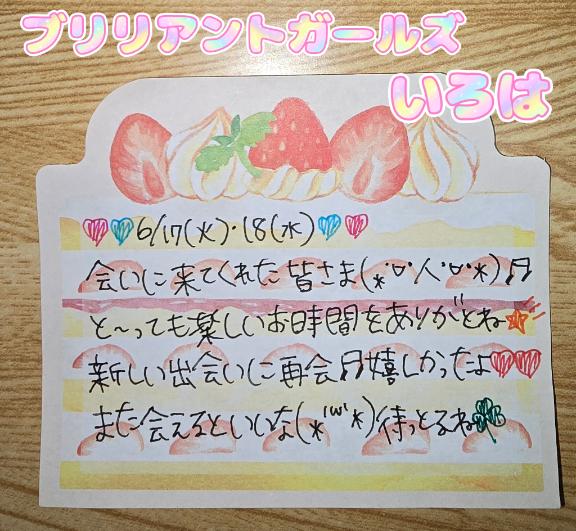 ブリリアントガールズ
いろは
♡♡6/17(火)・18(水)♡♡
会いに来てくれた皆さま(*˙ᗜ˙人˙ᗜ˙*)♬
と〜っても楽しいお時間をありがとね☆彡
新しい出会いに再会♬嬉しかったよ♡♡
また会えるといいな(*'ω'*)待っとるね🍀